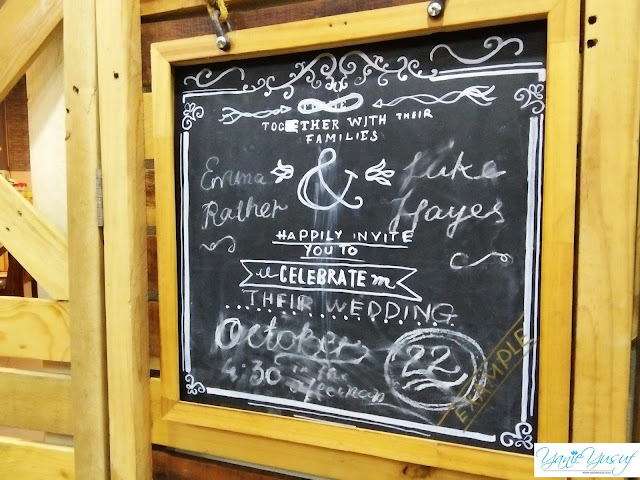 TOGETHER WITH THEIR
FAMILIES
Emma & Luke
Rather Hayes
HAPPILY INVITE
YOU TO
CELEBRATE
THEIR WEDDING
October 22
4:30 in the
afternoon
EXAMPLE
YanieYusuf